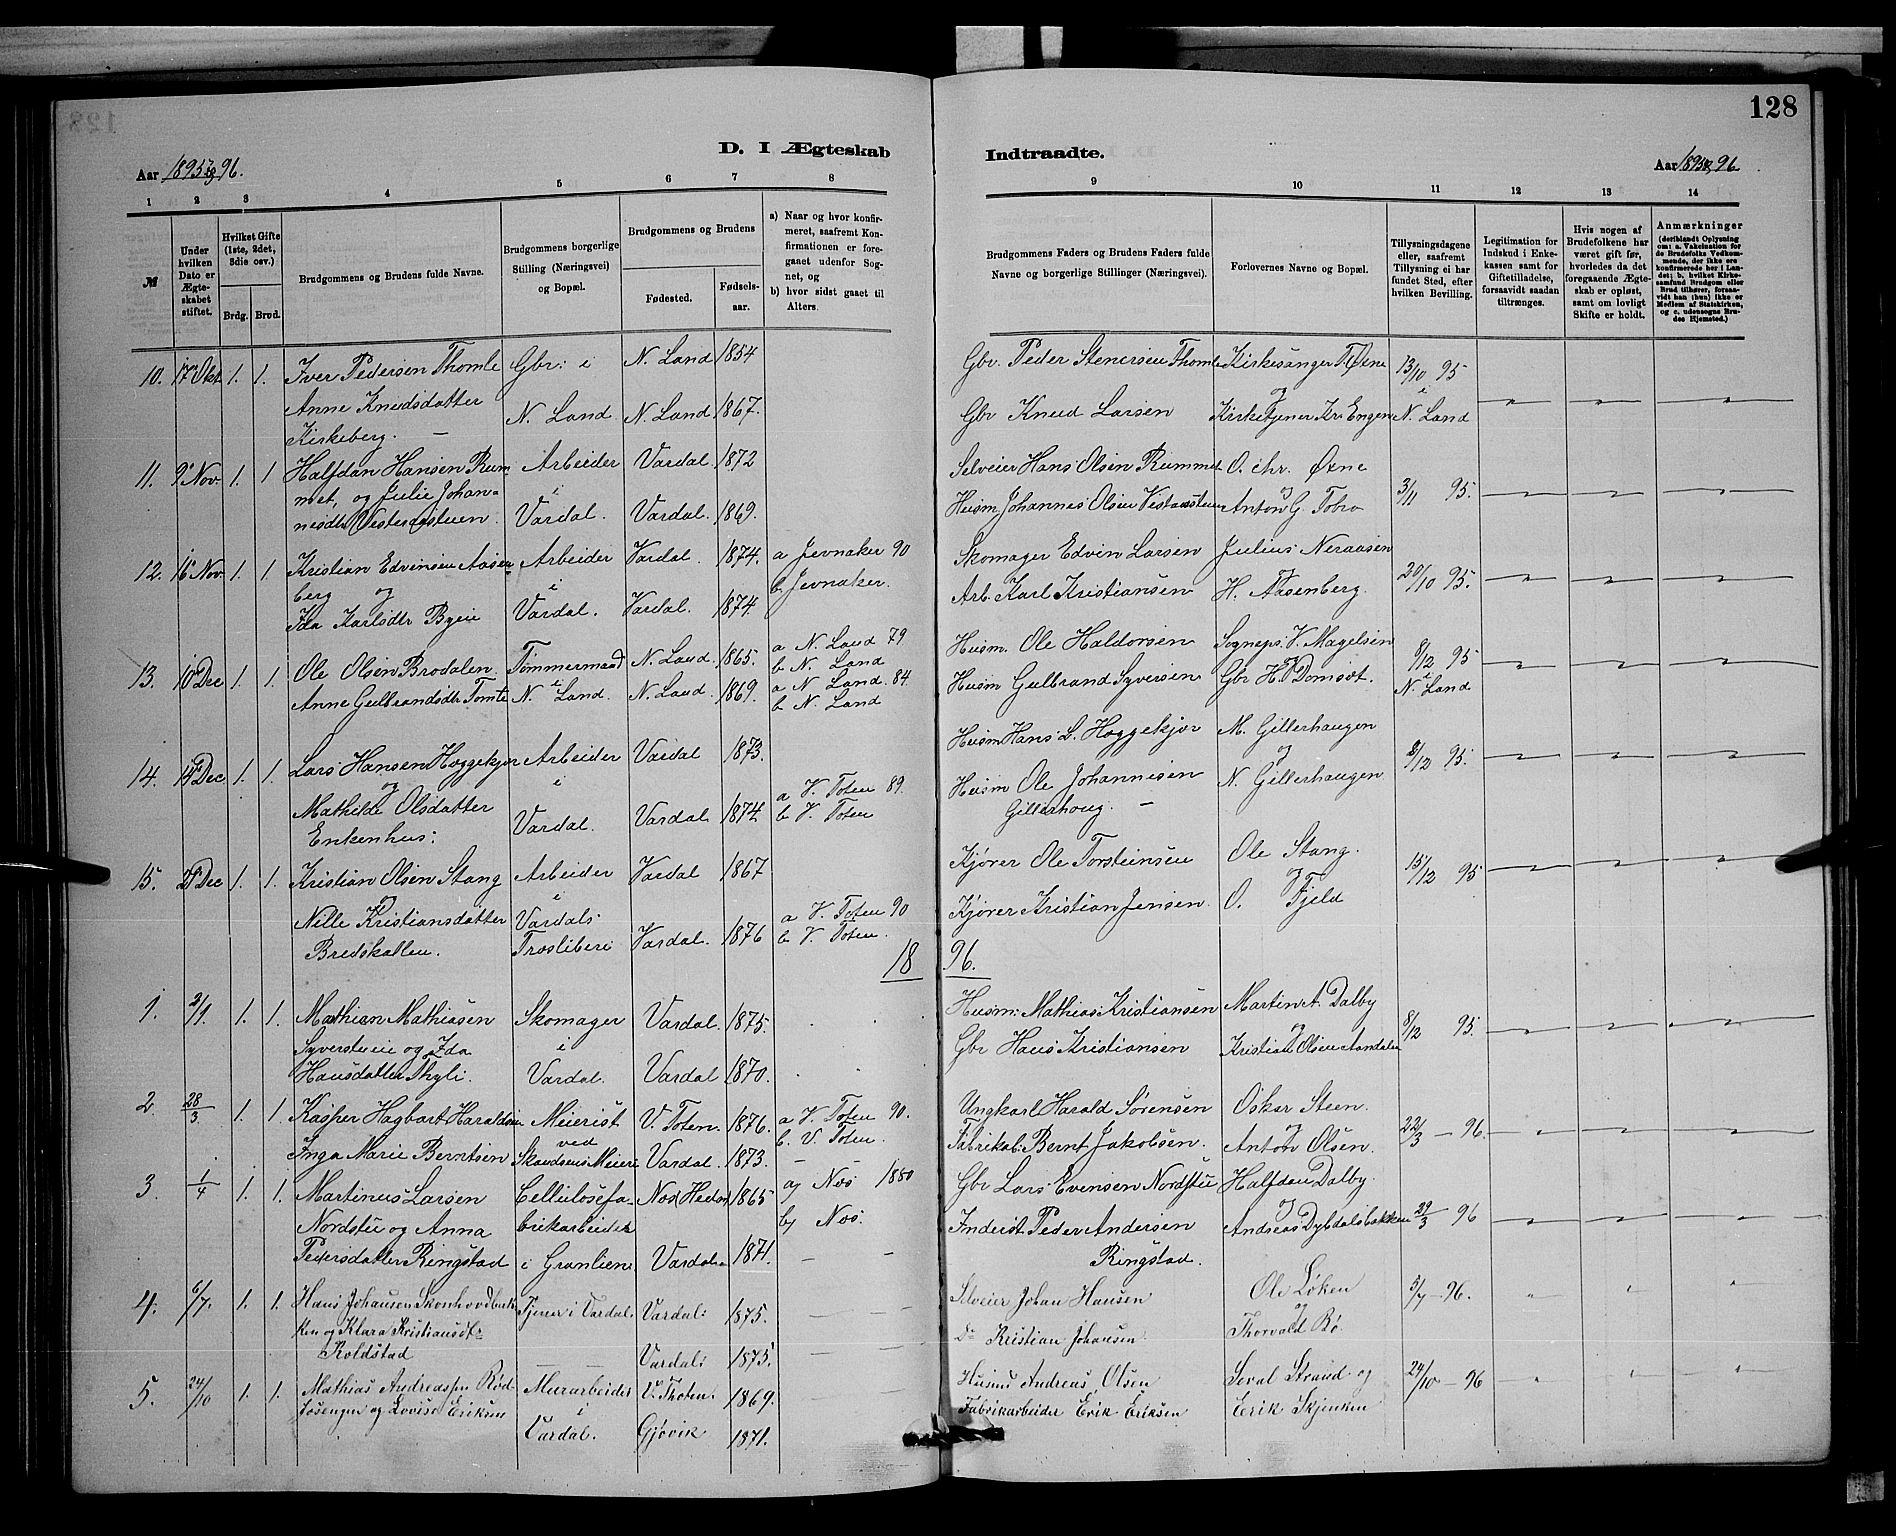 128
D. I Ægteskab
Indtraadte.
Aar 1895 & 96.
Aar 1895 & 96
1 2 3 4 5 6 7 8
9 10 11 12 13 14
№
Under hvilken Dato er Ægteskabet stiftet.
Hvilket Gifte (1ste, 2det, 3die osv.)
Brdg. Brud.
Brudgommens og Brudens fulde Navne.
Brudgommens borgerlige Stilling (Næringsvei) og Bopæl.
Brudgommens og Brudens
Fødested.
Fødselsaar.
a) Naar og hvor konfirmeret, saafremt Konfirmationen er foregaaet udenfor Sognet, og
b) hvor sidst gaaet til Alters.
Brudgommens Faders og Brudens Faders fulde Navne og borgerlige Stillinger (Næringsvei).
Forlovernes Navne og Bopæl.
Tillysningsdagene eller, saafremt Tillysning ei har fundet Sted, efter hvilken Bevilling.
Legitimation for Indskud i Enkekassen samt for Giftetilladelse, forsaavidt saadan tiltrænges.
Hvis nogen af Brudefolkene har været gift før, hvorledes da det foregaaende Ægteskab er opløst, samt om lovligt Skifte er holdt.
Anmærkninger
(deriblandt Oplysning om: a. Vakcination for de Brudefolks Vedkommende, der ikke ere konfirmerede her i Landet; b. hvilket Kirkesamfund Brudgom eller Brud tilhører, forsaavidt han (hun) ikke er Medlem af Statskirken, og c. udensogns Brudes Hjemsted.)
10. 17 Okt 1. 1. Iver Pedersen Thomle Gbr: i N. Land 1854 Gbr. Peder Stenersen Thomle Kirkesanger Øxne 13/10 95
Anne Knudsdatter N. Land N. Land 1867. Gbr Knud Larsen og Kirketjener Kr. Engen i N. Land
Kirkeberg. —
11. 9 Nov 1. 1 Halfdan Hansen Rum Arbeider Vardal. 1872 Selveier Hans Olsen Rummet O. Chr. Øxne 3/11 95.
met, og Julie Johan= i
nesdtr Vestenstuen. Vardal. Vardal. 1869. Husm Johannes Olsen Anton G. Tobro
12. 15 Nov 1. 1. Kristian Edvinsen Aasen Arbeider Vardal. 1874. a Jevnaker 90 Skomager Edvin Larsen Julius Neraasen 20/10 95.
berg og i b Jevnaker.
Ida Karlsdtr Byeie Vardal. Vardal. 1874. Arb. Karl Kristiansen H. Aasenberg.
13. 10 Dec 1. 1. Ole Olsen Brodalen Tømmermand N. Land. 1865. a N. Land 79 Husm. Ole Haldorsen Sognepr. V. Magelsen 8/12 95
b N. Land
Anne Gulbrandsdtr Tomte i N. Land. N. Land. 1869. a N. Land. 84. Husm Gulbrand Syversen Gbr H. Domsøt. i N. Land
b N. Land
14. 14 Dec 1. 1. Lars Hansen Høggekjør Arbeider Vardal 1873. Husm Hans L. Høggekjør M. Gillerhaugen 8/12 95.
og i
Mathilde Olsdatter Vardal. Vardal 1874. a V. Toten 89. Husm Ole Johannesen N. Gillerhaugen
Enkenhus: b V. Toten Gillerhoug. —
15. 27 Dec 1. 1. Kristian Olsen Stang Arbeider Vardal 1867 Kjører Ole Torsteinsen Ole Stang. 15/12 95
i
Nille Kristiansdatter Vardals a V. Toten 90 Kjører Kristian Jensen. O. Fjeld
Bredskallen. Trosliberi Vardal. 1876 b V. Toten.
18 96.
1. 2/1. 1. 1. Mathian Mathiasen Skomager Vardal. 1875. Husm: Mathias Kristiansen Martin A. Dalby 8/12 95.
Syverstuen og Ida i
Hansdatter Thyli. Vardal. Vardal 1870. Gbr Hans Kristiansen Kristian Olsen Aandalen
2. 28/3 1. 1. Kasper Hagbart Haraldsen Meierist V. Toten. 1876. a V. Toten 90. Ungkarl Harald Sørensen Oskar Steen. 22/3 — 96.
ved b. V. Toten.
Inga Marie Berntsen Skandsens Meieri Vardal. 1873. — — Fabrikab. Bernt Jakobsen. Anton Olsen.
3. 1/4 1. 1. Martinus Larsen Cellulosefa= Næs (Hedm 1865 a) Næs 1880 Gbr Lars Evensen Nordstu Halfdan Dalby. 29/3 96
Nordstu og Anna brikarbeider b) Næs. Inderst Peder Andersen Andreas Dybdalsbakken
Pedersdatter Ringstad i Granlien Vardal 1871. — — Ringstad.
4. 6/7. 1. 1. Hans Johansen Skonhovdbak Tjener i Vardal. Vardal: 1875. — — Selveier Johan Hansen Ole Løken 5/7 — 96.
ken og Klara Kristiansdtr
Roldstad — — Vardal: 1875. — — Do Kristian Johansen Thorvald Bø.
5. 24/10 1. 1. Mathias Andreassen Rød= Murarbeider V. Thoten: 1869. Husmd Andreas Olsen Seval Strand og 24/10 — 96
losengen og Lovise Eriksen i Fabrikarbeider Erik Eriksen Erik Skjenken
Vardal. Gjøvik 1871.